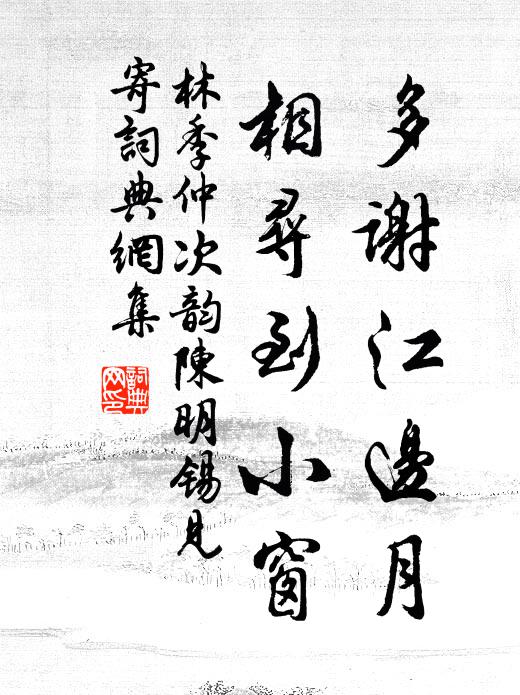 多謝江邊月
相尋到小窗
林季仲次韵陳明錫見
寄詞典網集
詞典
网印